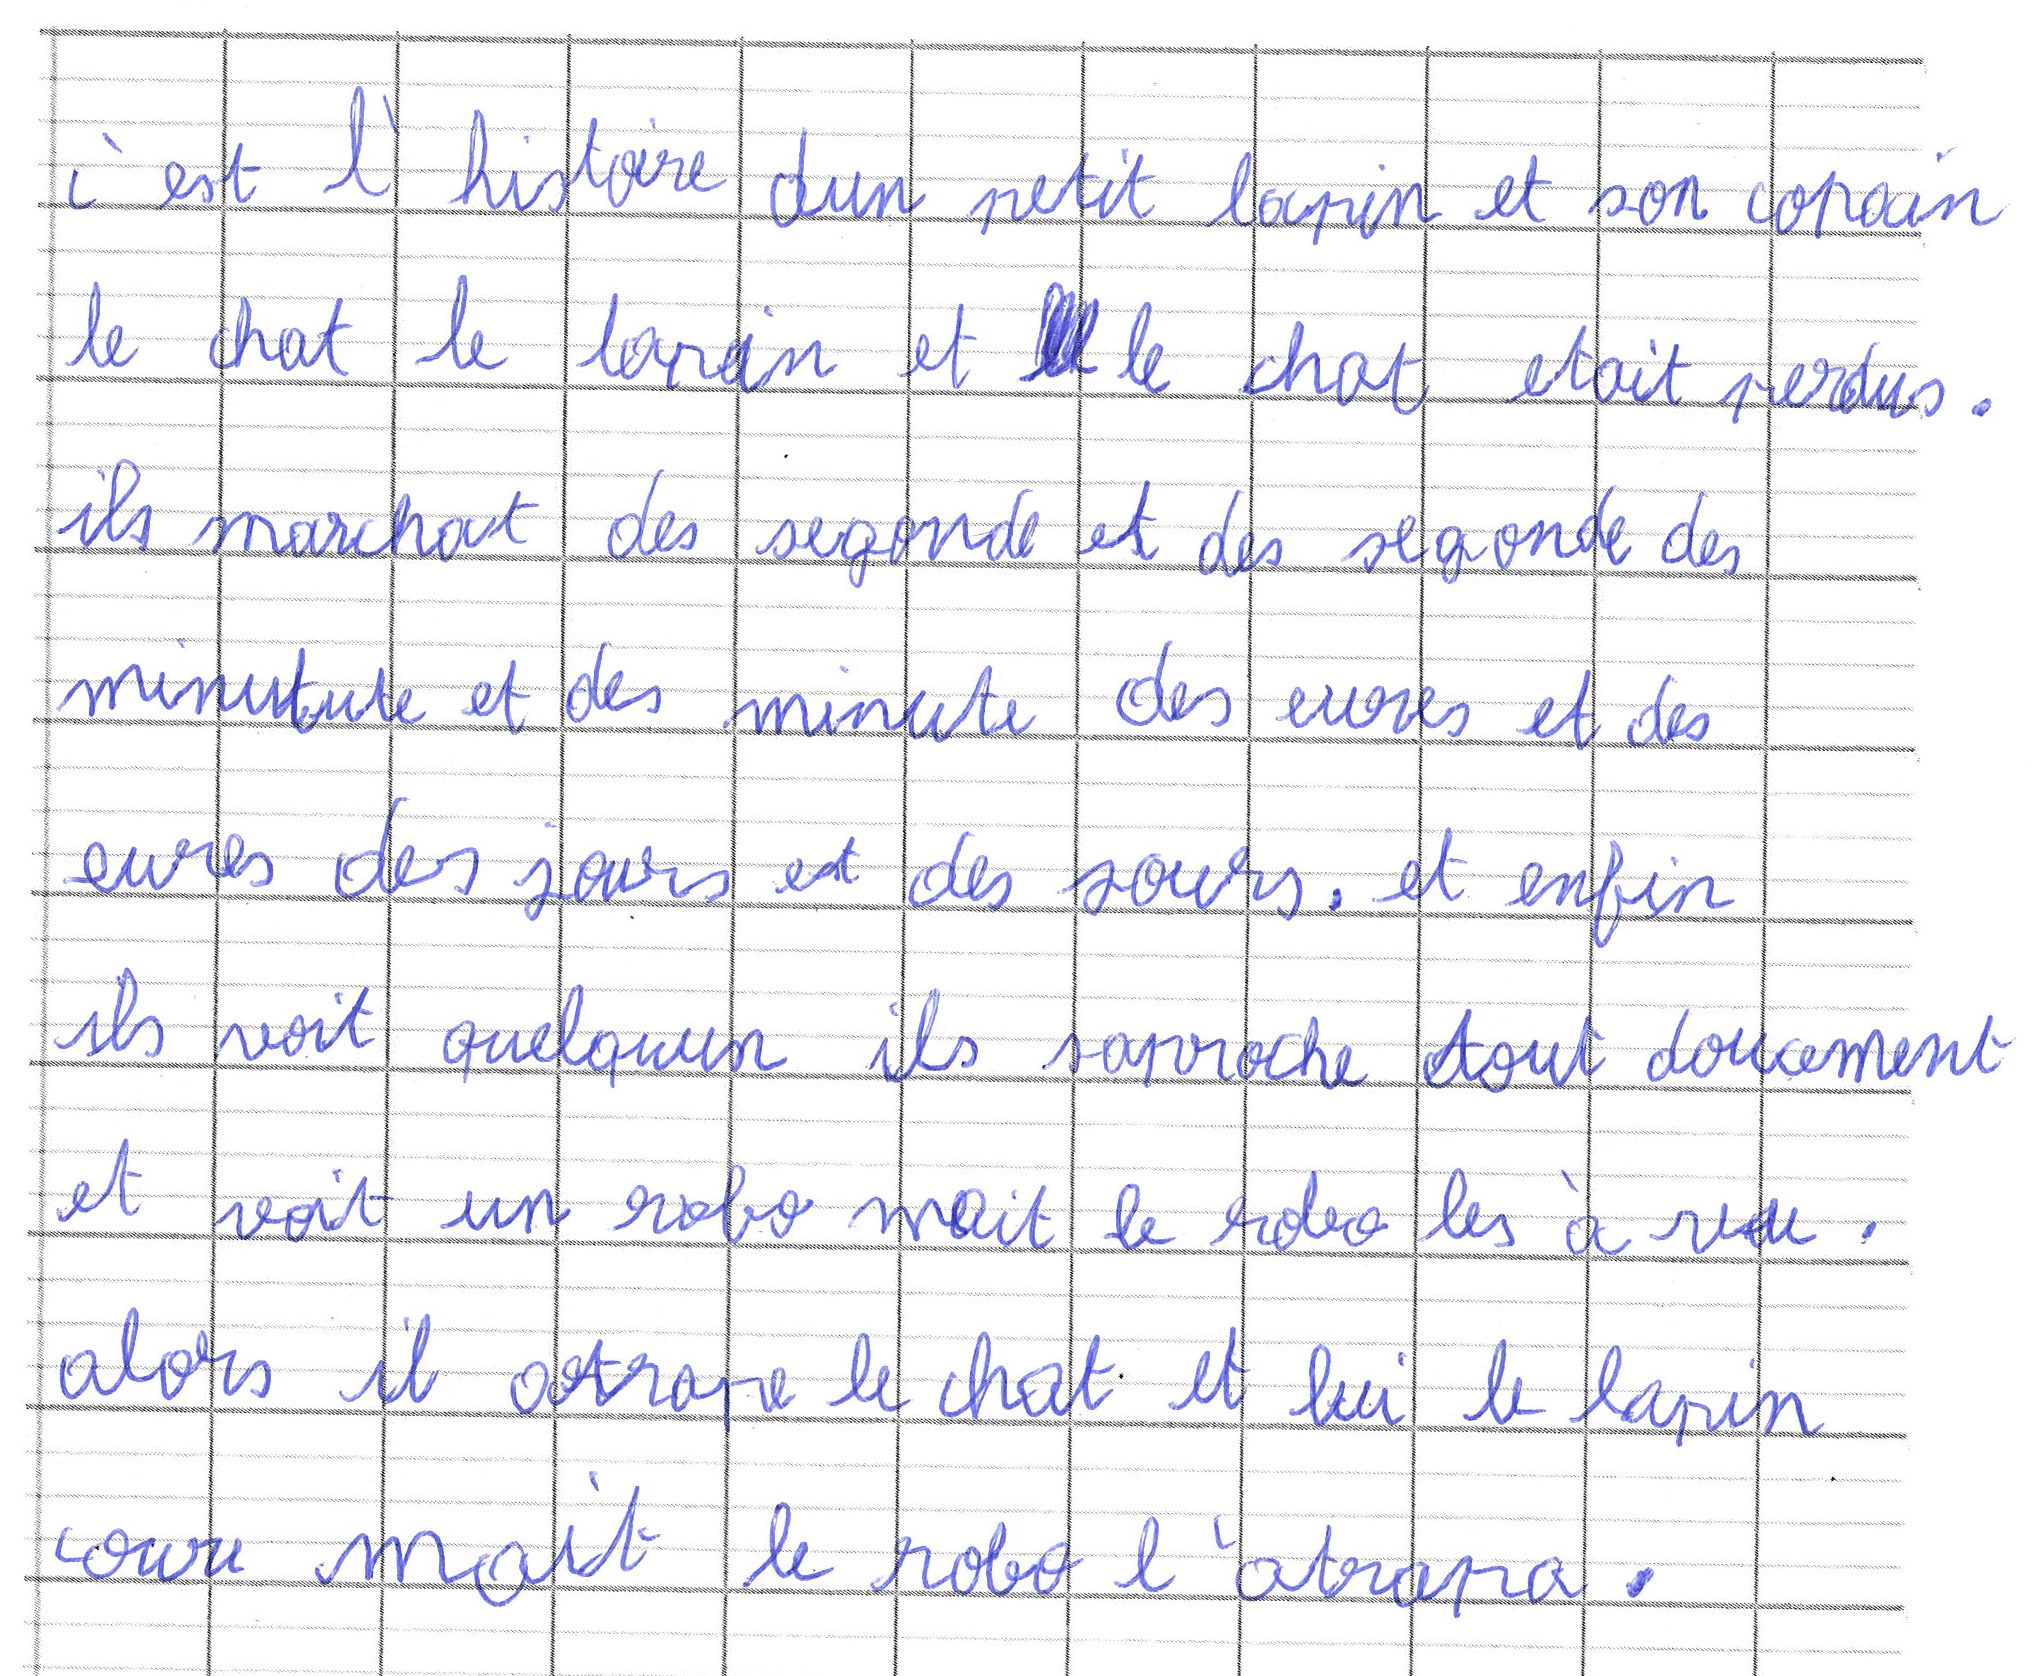 c'est l'histoire dun petit lapin et son copain
le chat le lapin et le chat etait perdus.
ils marchat des segonde et des segonde des
minutute et des minute des eures et des
eures des jours et des sours. et enfin
ils voit quelquun ils saproche tout doucement
et voit un robo mait le robo les à vu.
alors il atrape le chat et lui le lapin
coure mait le robo l'atrapa.